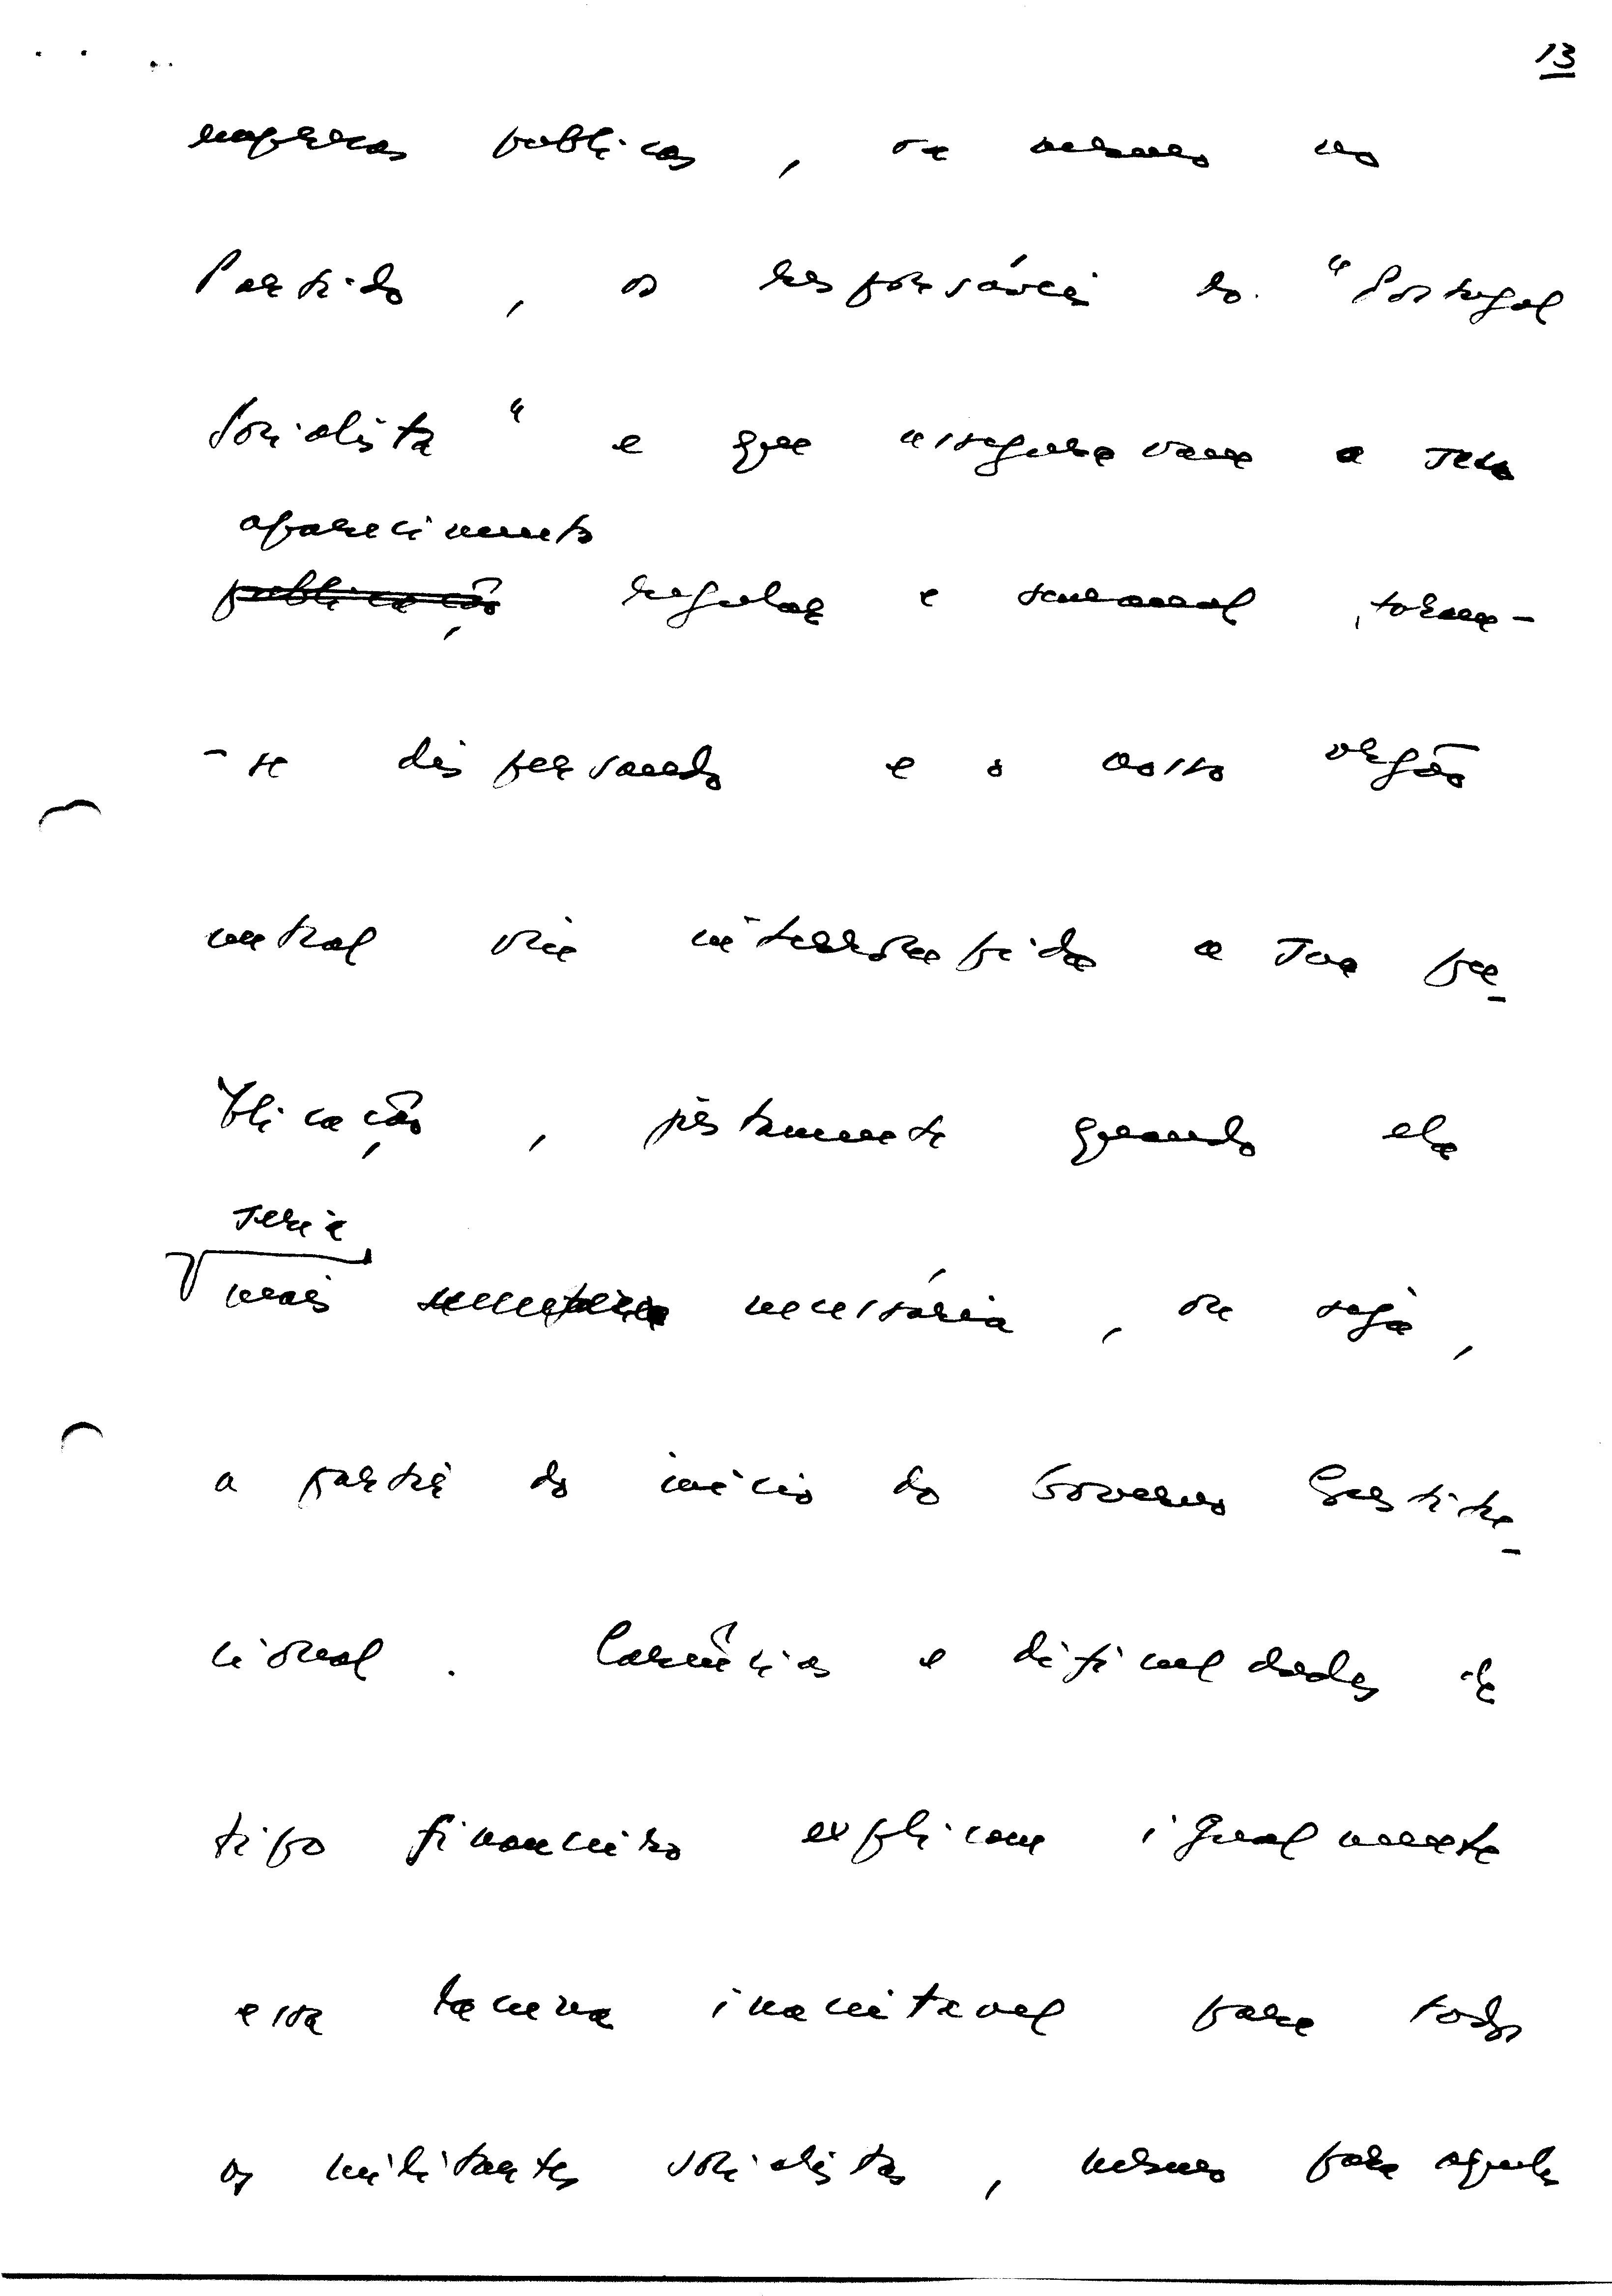 13
empresas publicas, ou mesmo no
Partido, os responsáveis do "Portugal
Socialista" e que asseguravam o seu
aparecimento
publicação regular e semanal, foram-
-se dispersando e o nosso orgão
central viu interrompida a sua pu-
blicação, justamente quando ela
seria
mais necessária, ou seja,
a partir do início do Governo Constitu-
cional. Carências e dificuldades de
tipo financeiro explicam igualmente
essa lacuna inaceitavel para todos
os militantes socialistas, mesmo para aqueles